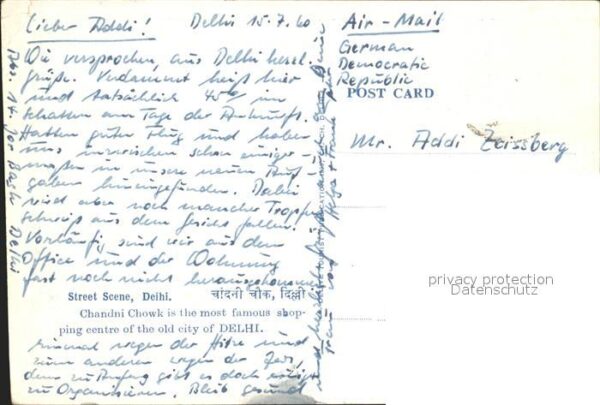 Lieber Addi! Delhi 15.7.60
Wie versprochen, aus Delhi herzl.
Grüße. Verdammt heiß hier
und tatsächlich 45° im
Schatten am Tage der Ankunft.
Hatten guten Flug und haben
uns inzwischen schon einiger-
maßen in unsere neuen Auf
gaben hineingefunden. Dabei
wird aber noch mancher Tropfen
Schweiß aus dem Gesicht fallen.
Vorläufig sind wir aus dem
Office und der Wohnung
fast noch nicht herausgekommen
Street Scene, Delhi. चांदनी चौक, दिल्ली
Chandni Chowk is the most famous shop-
ping centre of the old city of DELHI.
einmal wegen der Hitze und
zum anderen wegen der Zeit,
denn zu Anfang gibt es doch
zu Organisieren. Bleib gesund
und
Frau von Helga + Frank
Abs.
Delhi
Air-Mail
German
Democratic
Republic
POST CARD
Mr. Addi Zeissberg
privacy protection
Datenschutz